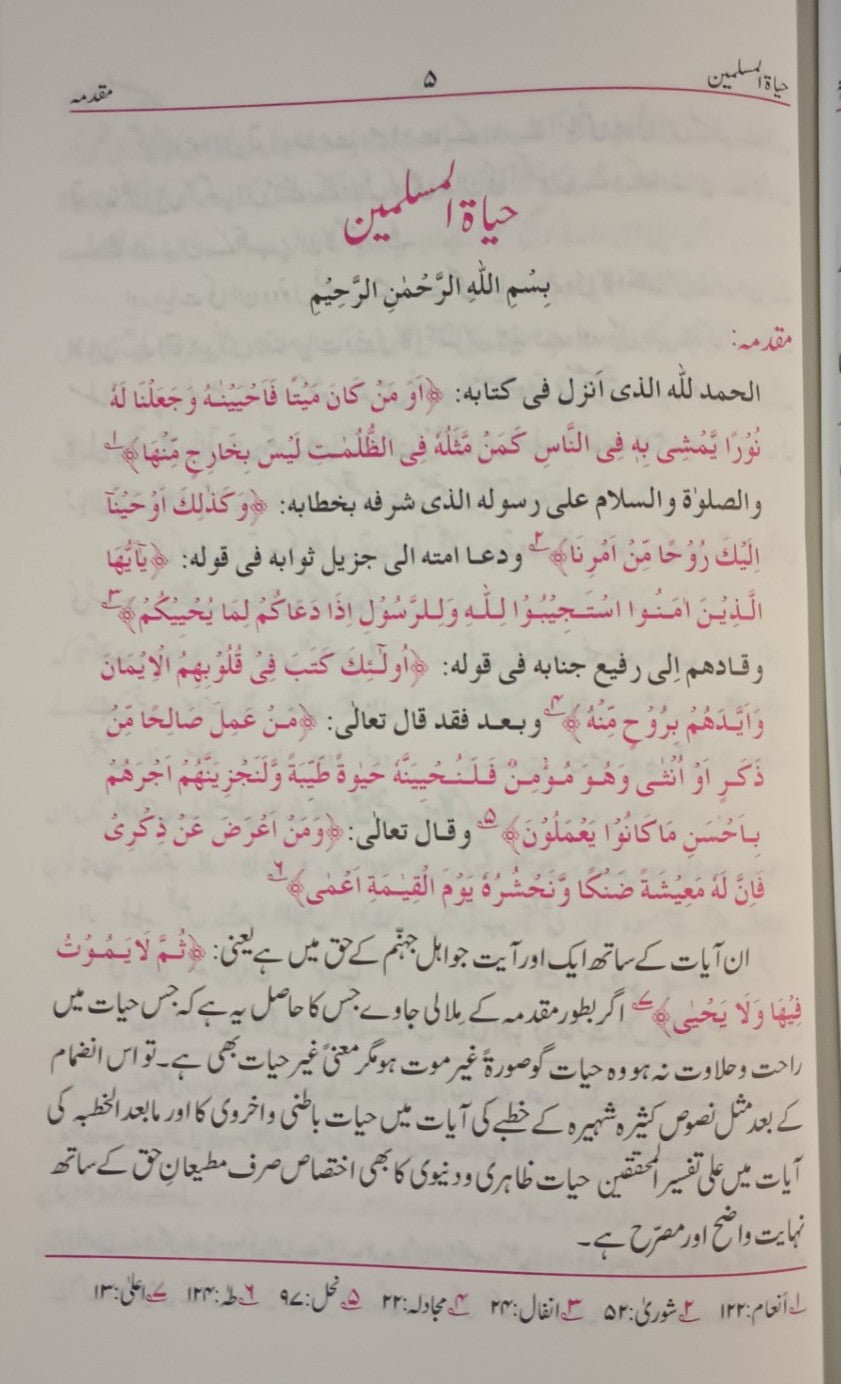 حیاۃ المسلمین ۵ مقدمہ
حیاۃ المسلمین
بِسْمِ اللّٰهِ الرَّحْمٰنِ الرَّحِیْمِ
مقدمہ:
الحمد للّٰه الذی اَنزل فی کتابه: ﴿اَوَ مَنْ كَانَ مَیْتًا فَاَحْیَیْنٰهُ وَ جَعَلْنَا لَهٗ
نُوْرًا یَّمْشِیْ بِهٖ فِی النَّاسِ كَمَنْ مَّثَلُهٗ فِی الظُّلُمٰتِ لَیْسَ بِخَارِجٍ مِّنْهَا﴾ ۱؎
والصلوٰة والسلام علی رسوله الذی شرفه بخطابه: ﴿وَ كَذٰلِكَ اَوْحَیْنَاۤ
اِلَیْكَ رُوْحًا مِّنْ اَمْرِنَا﴾ ۲؎ ودعا امته الی جزیل ثوابه فی قوله: ﴿یٰۤاَیُّهَا
الَّذِیْنَ اٰمَنُوا اسْتَجِیْبُوْا لِلّٰهِ وَ لِلرَّسُوْلِ اِذَا دَعَاكُمْ لِمَا یُحْیِیْكُمْ﴾ ۳؎
وقادهم اِلی رفیع جنابه فی قوله: ﴿اُولٰٓئِكَ كَتَبَ فِیْ قُلُوْبِهِمُ الْاِیْمَانَ
وَاَیَّدَهُمْ بِرُوْحٍ مِّنْهُ﴾ ۴؎ وبعد فقد قال تعالٰی: ﴿مَنْ عَمِلَ صَالِحًا مِّنْ
ذَكَرٍ اَوْ اُنْثٰی وَهُوَ مُؤْمِنٌ فَلَنُحْیِیَنَّهٗ حَیٰوةً طَیِّبَةً وَّلَنَجْزِیَنَّهُمْ اَجْرَهُمْ
بِاَحْسَنِ مَا كَانُوْا یَعْمَلُوْنَ﴾ ۵؎ وقال تعالٰی: ﴿وَمَنْ اَعْرَضَ عَنْ ذِكْرِیْ
فَاِنَّ لَهٗ مَعِیْشَةً ضَنْكًا وَّنَحْشُرُهٗ یَوْمَ الْقِیٰمَةِ اَعْمٰی﴾ ۶؎
ان آیات کے ساتھ ایک اور آیت جو اہل جہنّم کے حق میں ہے یعنی: ﴿ثُمَّ لَا یَمُوْتُ
فِیْهَا وَلَا یَحْیٰی﴾ ۷؎ اگر بطور مقدمہ کے مِلالی جاوے جس کا حاصل یہ ہے کہ جس حیات میں
راحت و حلاوت نہ ہو وہ حیات گو صورۃً غیر موت ہو مگر معنیً غیر حیات بھی ہے۔ تو اس انضمام
کے بعد مثل نصوص کثیرہ شہیرہ کے خطبے کی آیات میں حیات باطنی و اخروی کا اور مابعد الخطبہ کی
آیات میں علی تفسیر المحققین حیات ظاہری و دنیوی کا بھی اختصاص صرف مطیعانِ حق کے ساتھ
نہایت واضح اور مصرّح ہے۔
۱؎ اَنعام:۱۲۲ ۲؎ شوریٰ:۵۲ ۳؎ انفال:۲۴ ۴؎ مجادلہ:۲۲ ۵؎ نحل:۹۷ ۶؎ طٰہٰ:۱۲۴ ۷؎ اعلیٰ:۱۳